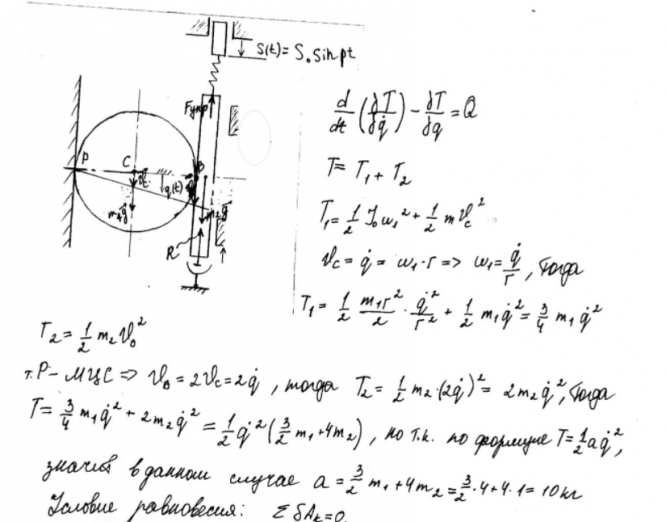 S(t) = S₀ sin pt
Fупр
P C B
v̄c q(t)
m₁ḡ m₂ḡ
R
d/dt (∂T/∂q̇) - ∂T/∂q = Q
T = T₁ + T₂
T₁ = 1/2 J₀ω₁² + 1/2 m v_c²
v_c = q̇ = ω₁·r => ω₁ = q̇/r, тогда
T₁ = 1/2 m₁r²/2 · q̇²/r² + 1/2 m₁q̇² = 3/4 m₁q̇²
T₂ = 1/2 m₂v_B²
т. P - МЦС => v_B = 2v_C = 2q̇, тогда T₂ = 1/2 m₂·(2q̇)² = 2m₂q̇², тогда
T = 3/4 m₁q̇² + 2m₂q̇² = 1/2 q̇² (3/2 m₁ + 4m₂), но т.к. по формуле T = 1/2 aq̇²,
значит в данном случае a = 3/2 m₁ + 4m₂ = 3/2·4 + 4·1 = 10 кг
Условие равновесия: ΣδA_k = 0